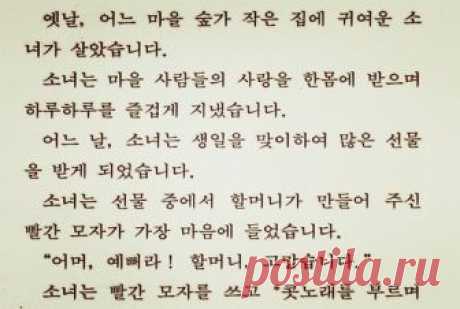 옛날, 어느 마을 숲가 작은 집에 귀여운 소
녀가 살았습니다.
소녀는 마을 사람들의 사랑을 한몸에 받으며
하루하루를 즐겁게 지냈습니다.
어느 날, 소녀는 생일을 맞이하여 많은 선물
을 받게 되었습니다.
소녀는 선물 중에서 할머니가 만들어 주신
빨간 모자가 가장 마음에 들었습니다.
"어머, 예뻐라! 할머니, 고맙습니다."
소녀는 빨간 모자를 쓰고 *콧노래를 부르며
postila.ru